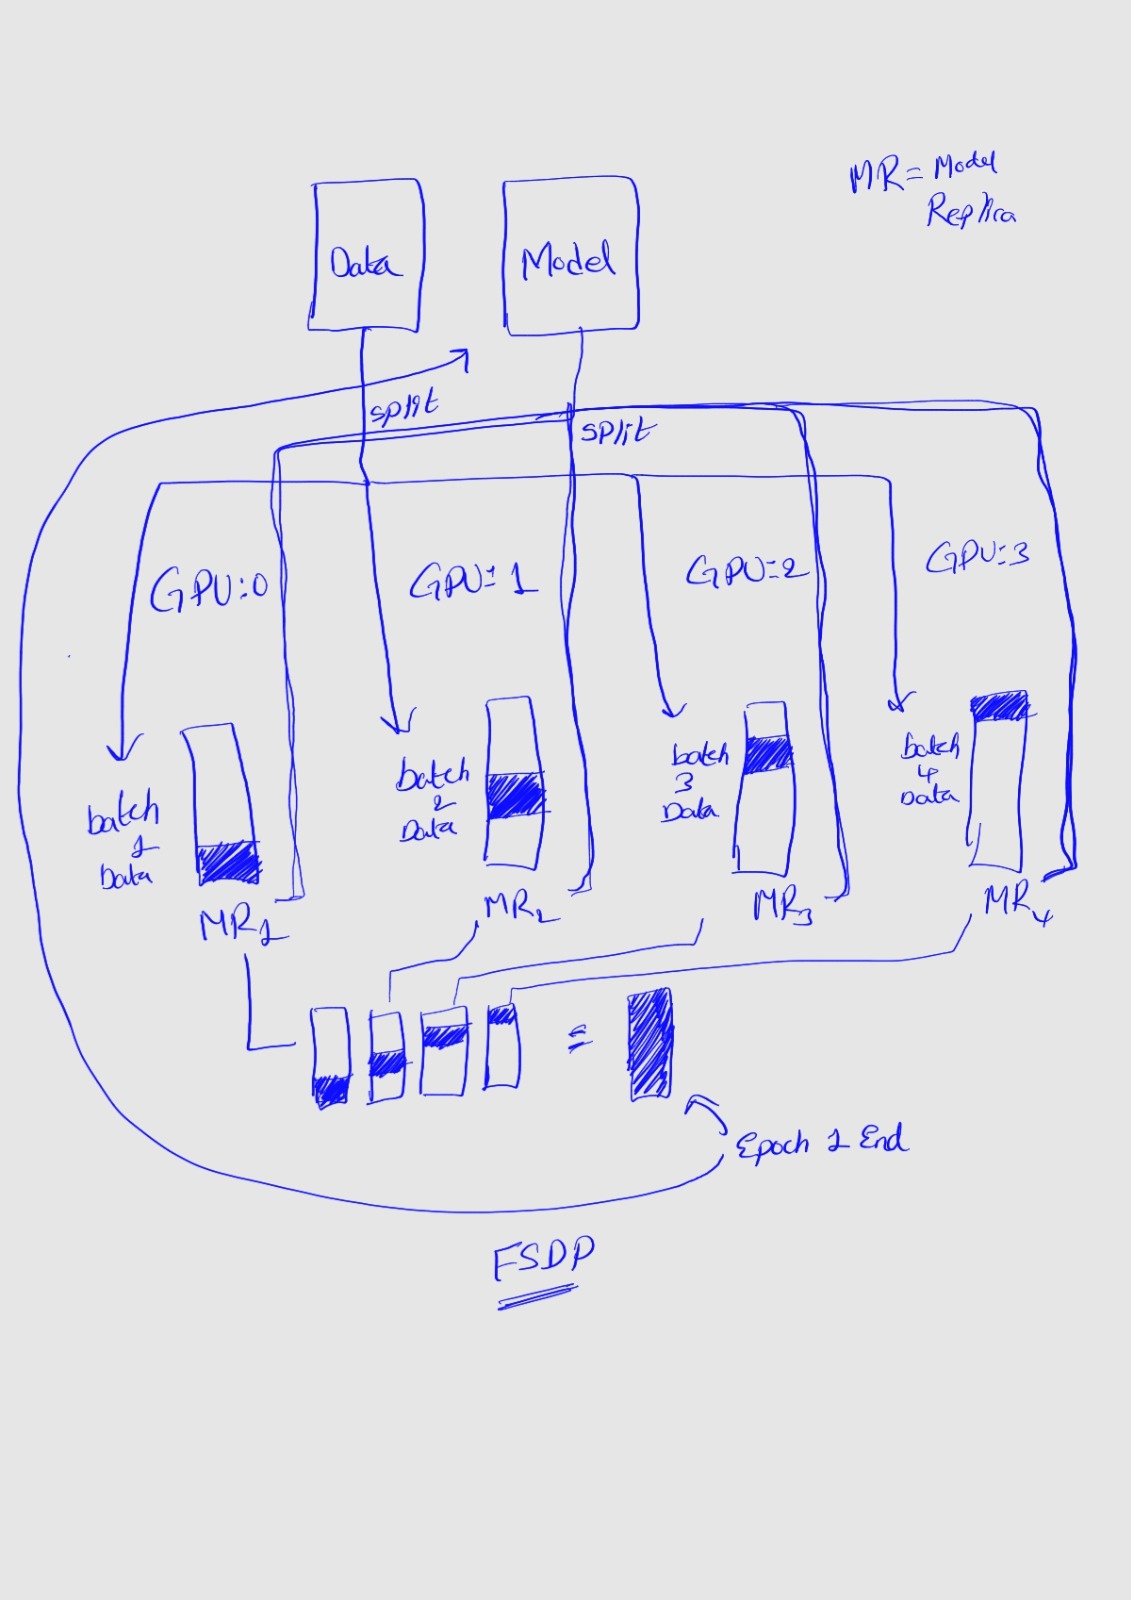 MR = Model
Replica
Data
Model
split
split
GPU:0
GPU:1
GPU:2
GPU:3
batch
1
Data
batch
2
Data
batch
3
Data
batch
4
Data
MR1
MR2
MR3
MR4
=
Epoch 1 End
FSDP